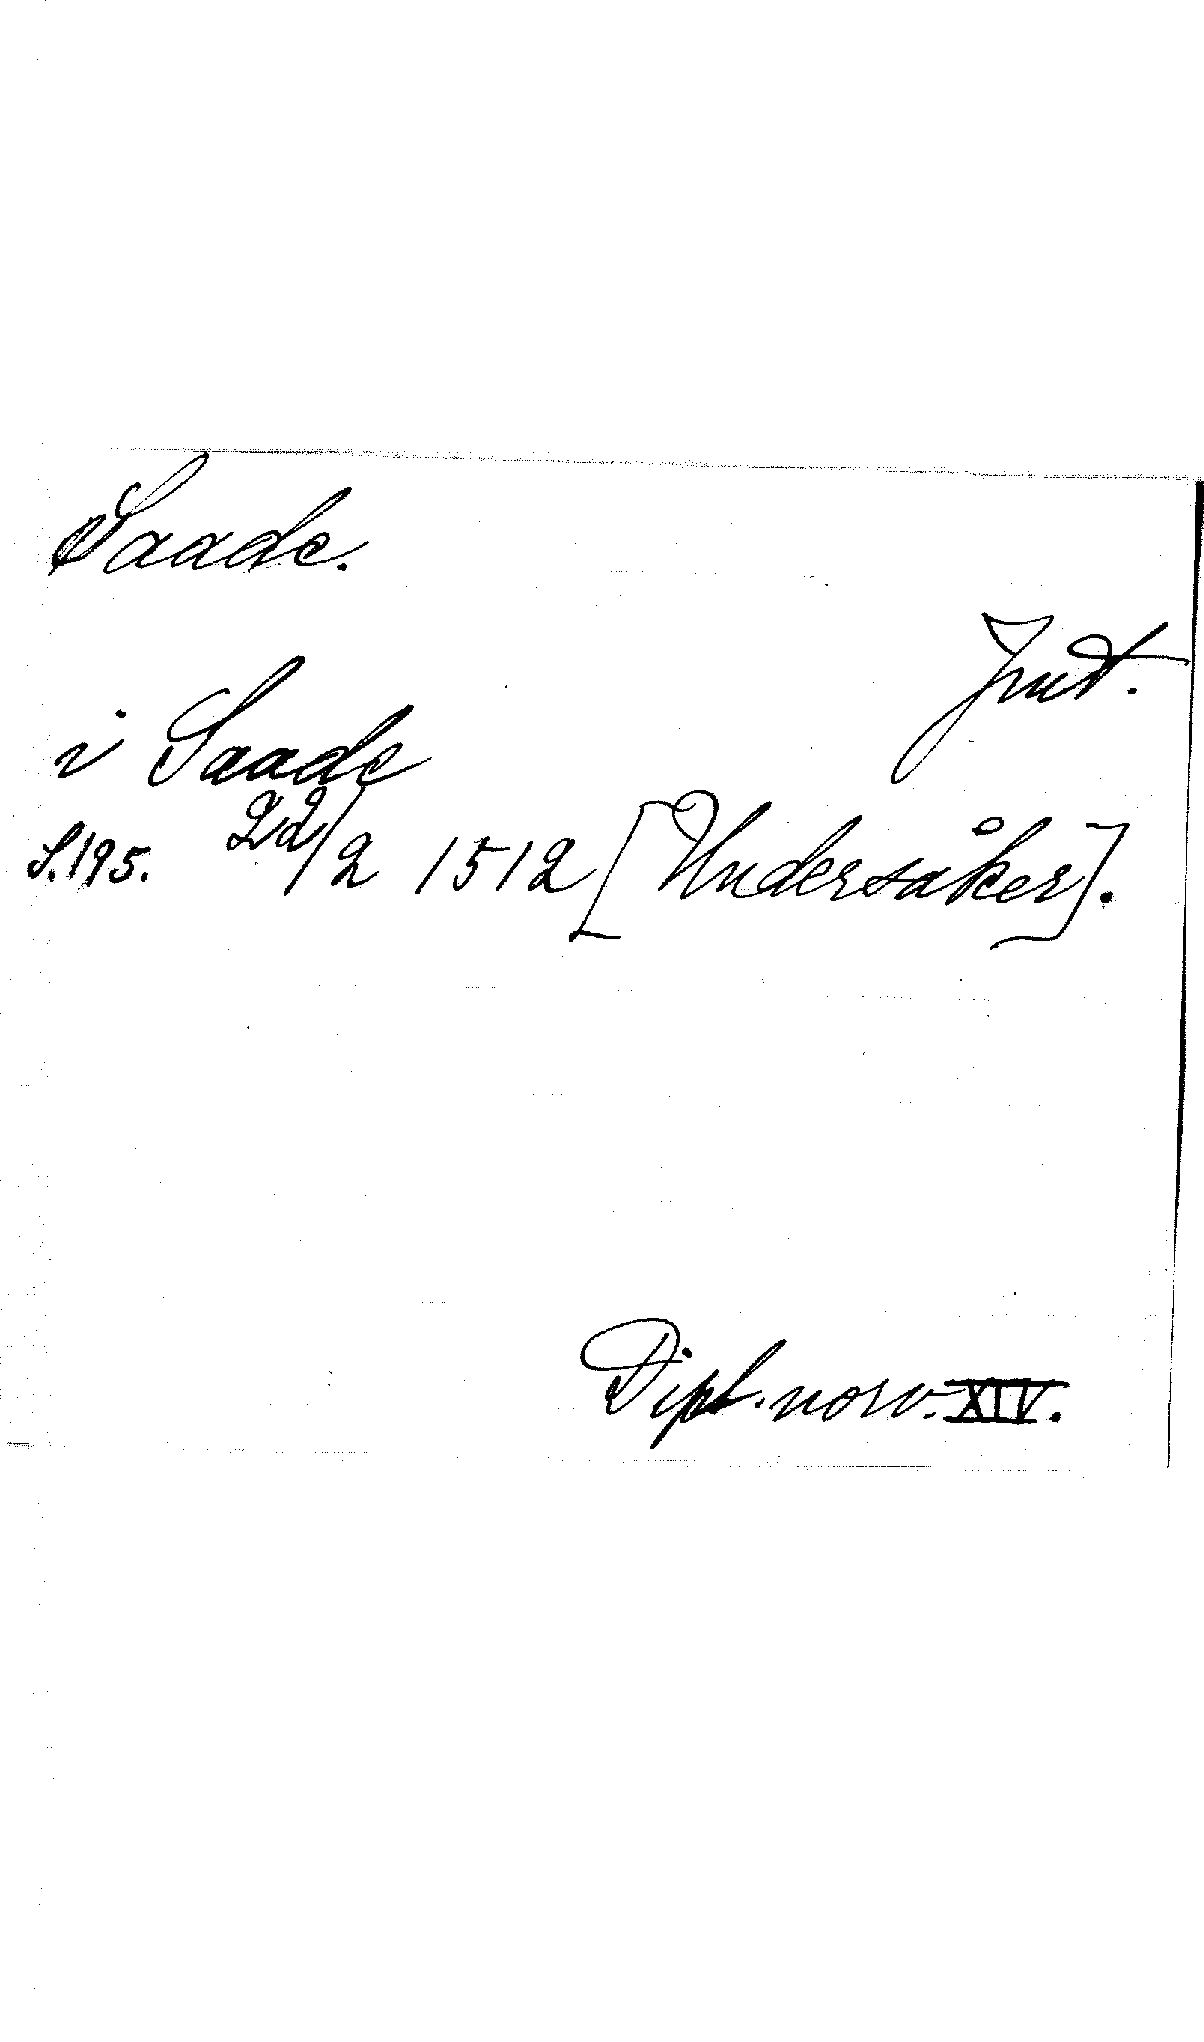 Saade.
Jmt.
i Saade
S.195. 22/2 1512 [Undersåker].
Dipl. norv. XIV.